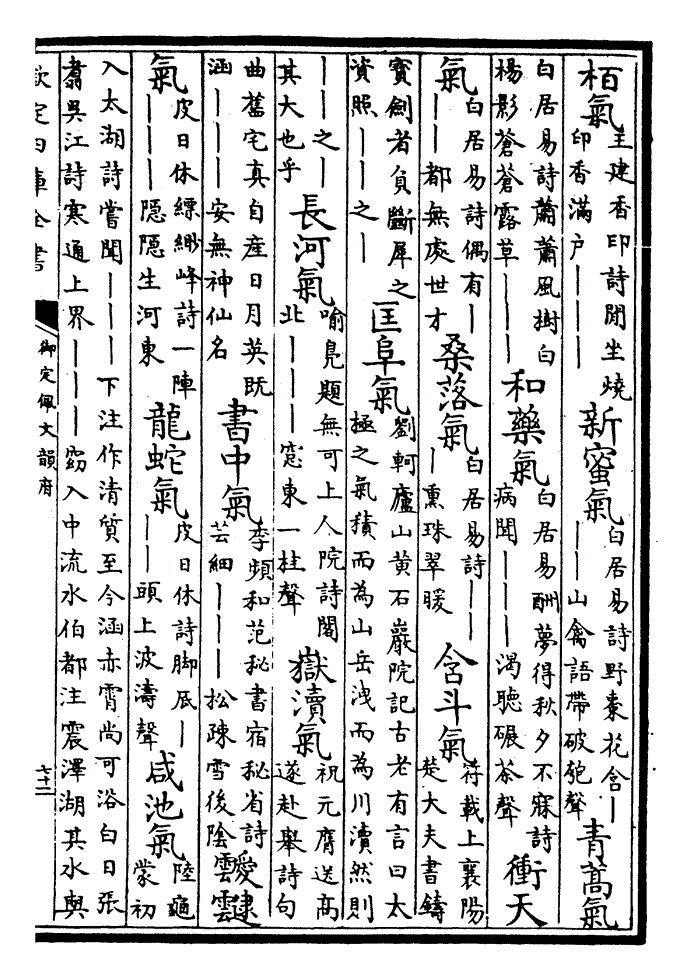 栢氣王建香印詩閒坐燒印香滿户———新蜜氣白居易詩野棗花含———山禽語帶破匏聲青蒿氣
白居易詩蕭蕭風樹白楊影蒼蒼露草———和藥氣白居易酬夢得秋夕不寐詩病聞———渴聽碾茶聲衝天
氣白居易詩偶有———都無處世才桑落氣白居易詩———熏珠翠暖含斗氣符載上襄陽楚大夫書鑄
寳劍者負斷犀之資照——之—匡阜氣劉軻廬山黄石巖院記古老有言曰太極之氣積而為山岳洩而為川瀆然則
——之—其大也乎長河氣喻鳬題無可上人院詩閣北———窓東一拄聲嶽瀆氣祝元膺送高遂赴舉詩句
曲舊宅真自産日月英既涵———安無神仙名書中氣李頻和范秘書宿秘省詩芸細———松疎雪後陰靉靆
氣皮日休縹緲峰詩一陣———隠隠生河東龍蛇氣皮日休詩脚底———頭上波濤聲咸池氣陸龜蒙初
入太湖詩嘗聞———下注作清質至今涵赤霄尚可浴白日張翥吴江詩寒通上界———窈入中流水伯都注震澤湖其水與
欽定四庫全書
御定佩文韻府
七十二